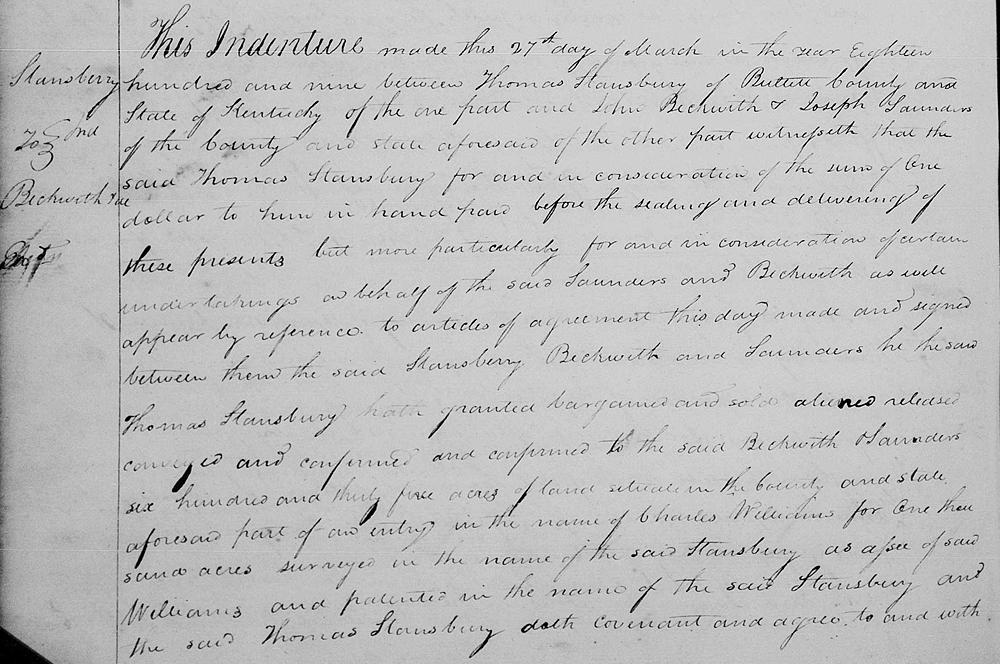 This Indenture made this 27th day of March in the year Eighteen
Stansberry
hundred and nine between Thomas Stansbury of Bullett County and
State of Kentucky of the one part and John Beckwith & Joseph Saunders
To
of the County and state aforesaid of the other part witnesseth that the
said Thomas Stansbury for and in consideration of the sum of One
Beckwith &c
dollar to him in hand paid before the sealing and delivering of
these presents but more particularly for and in consideration of certain
undertakings on behalf of the said Saunders and Beckwith as will
appear by reference to articles of agreement this day made and signed
between them the said Stansberry Beckwith and Saunders he the said
Thomas Stansbury hath granted bargained and sold aliened released
conveyed and confirmed and confirmed to the said Beckwith & Saunders
six hundred and thirty five acres of land situate in the County and state
aforesaid part of an entry in the name of Charles Williams for One thou
sand acres surveyed in the name of the said Stansbury as assee of said
Williams and patented in the name of the said Stansbury and
the said Thomas Stansbury doth covenant and agree to and with